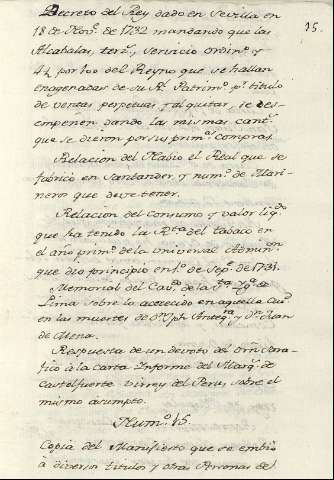 15.
Decreto del Rey dado en Sevilla en
18 de Nov.e de 1732 mandando que las
Alcabalas, terz.s, servicio ordin.o y
4 por 100 del Reyno que se hallan
enagenadas de su R.l Patrim.o p.r titulo
de ventas perpetuas y al quitar, se des-
empeñen dando las mismas cant.s
que se dieron por sus prim.s compras.
Relacion del Navio el Real que se
fabricó en Santander y num.o de Mari-
neros que deve tener.
Relacion del Consumo y valor liq.do
que ha tenido la R.ta del tabaco en
el año prim.o de la Universal Admin.on
que dio principio en 1.o de Sep.e de 1731.
Memorial del Cav.do de la S.ta Ygl.a de
Lima sobre lo acaecido en aquella Ciu.d
en las muertes de D.n Jph. Anteq.ra y D.n Juan
de Mena.
Respuesta de un devoto del Orn Sera-
fico à la Carta Informe del Marq.s de
Castelfuerte Virrey del Peru, sobre el
mismo asumpto.
Num.o 15.
Copia del Manifiesto que se embió
à diversos titulos y otras Personas de